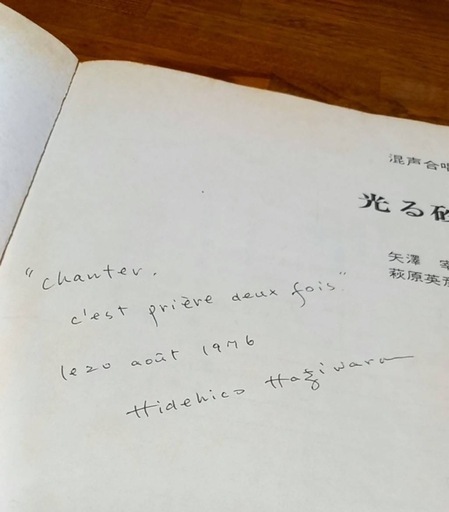 混声合唱
光る砂
矢澤 宰
萩原英彦
"chanter,
c'est prière deux fois"
le 20 août 1976
Hidehico Hagiwara